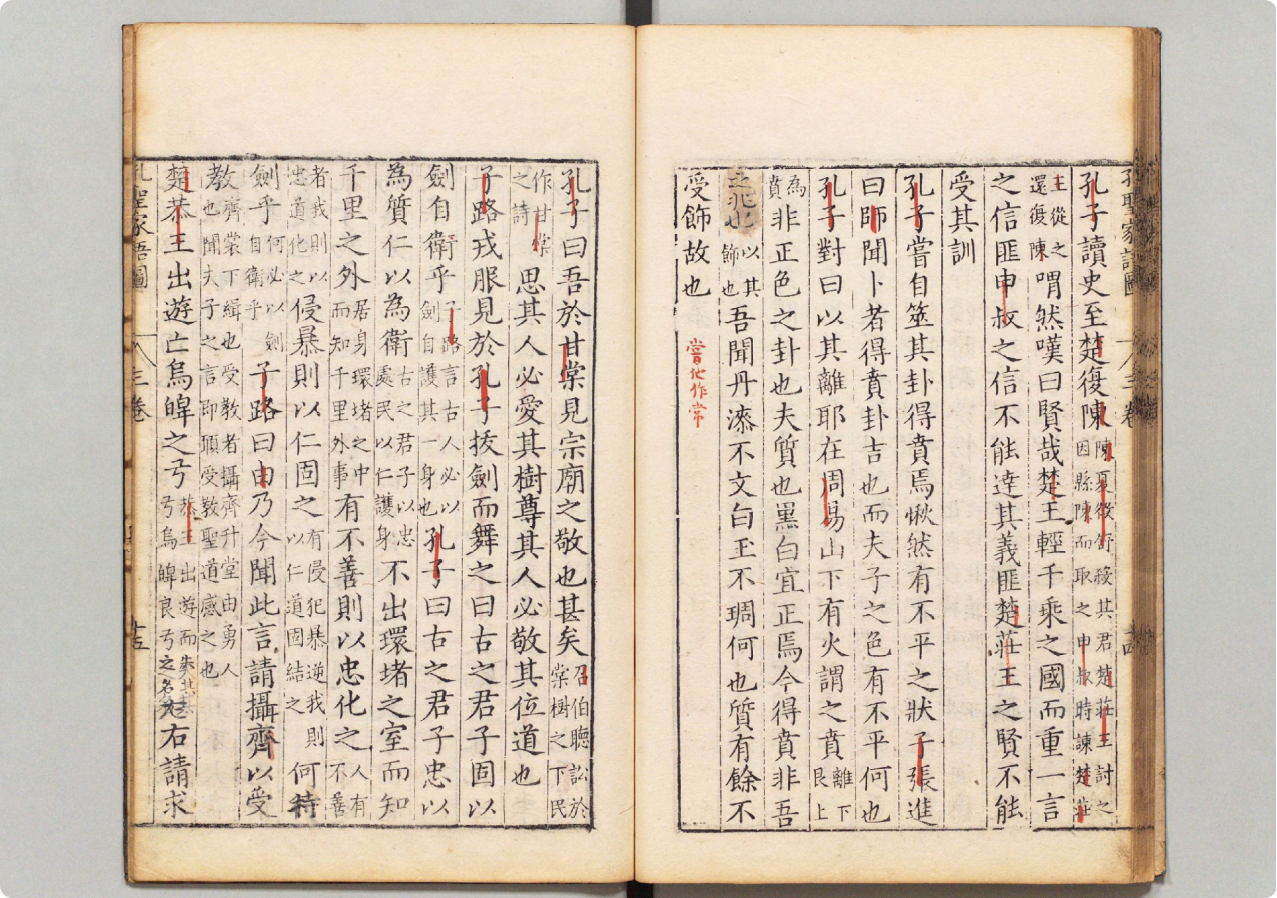 孔聖家語圖 三卷 十四
孔子讀史至楚復陳陳夏徵舒殺其君楚莊王討之因縣陳而取之申叔時諫楚莊
王從之還復陳喟然嘆曰賢哉楚王輕千乘之國而重一言
之信匪申叔之信不能逹其義匪楚莊王之賢不能
受其訓
孔子嘗自筮其卦得賁焉愀然有不平之狀子張進
曰師聞卜者得賁卦吉也而夫子之色有不平何也
孔子對曰以其離耶在周昜山下有火謂之賁離下艮上
為賁非正色之卦也夫質也黑白宜正焉今得賁非吾
之兆也以其飾也吾聞丹漆不文白玉不琱何也質有餘不
受飾故也 嘗他作常
孔子曰吾於甘棠見宗廟之敬也甚矣召伯聽訟於棠樹之下民
作甘棠之詩思其人必愛其樹尊其人必敬其位道也
子路戎服見於孔子拔劍而舞之曰古之君子固以
劍自衛乎子路言古人必以劍自護其一身也孔子曰古之君子忠以
為質仁以為衛古之君子以忠處民以仁護身不出環堵之室而知
千里之外居身環堵之中而知千里外事有不善則以忠化之人有不善
者我則以忠道化之侵暴則以仁固之有侵犯暴逆我則以仁道固結之何待
劍乎何必以劍自衛乎子路曰由乃今聞此言請攝齊以受
教齊裳下緝也受教者攝齊升堂由勇人也聞夫子之言即願受教聖道感之也
楚恭王出遊亡烏皡之弓恭王出遊而失其烏皡良弓之名左右請求
孔聖家語圖 三卷 十五